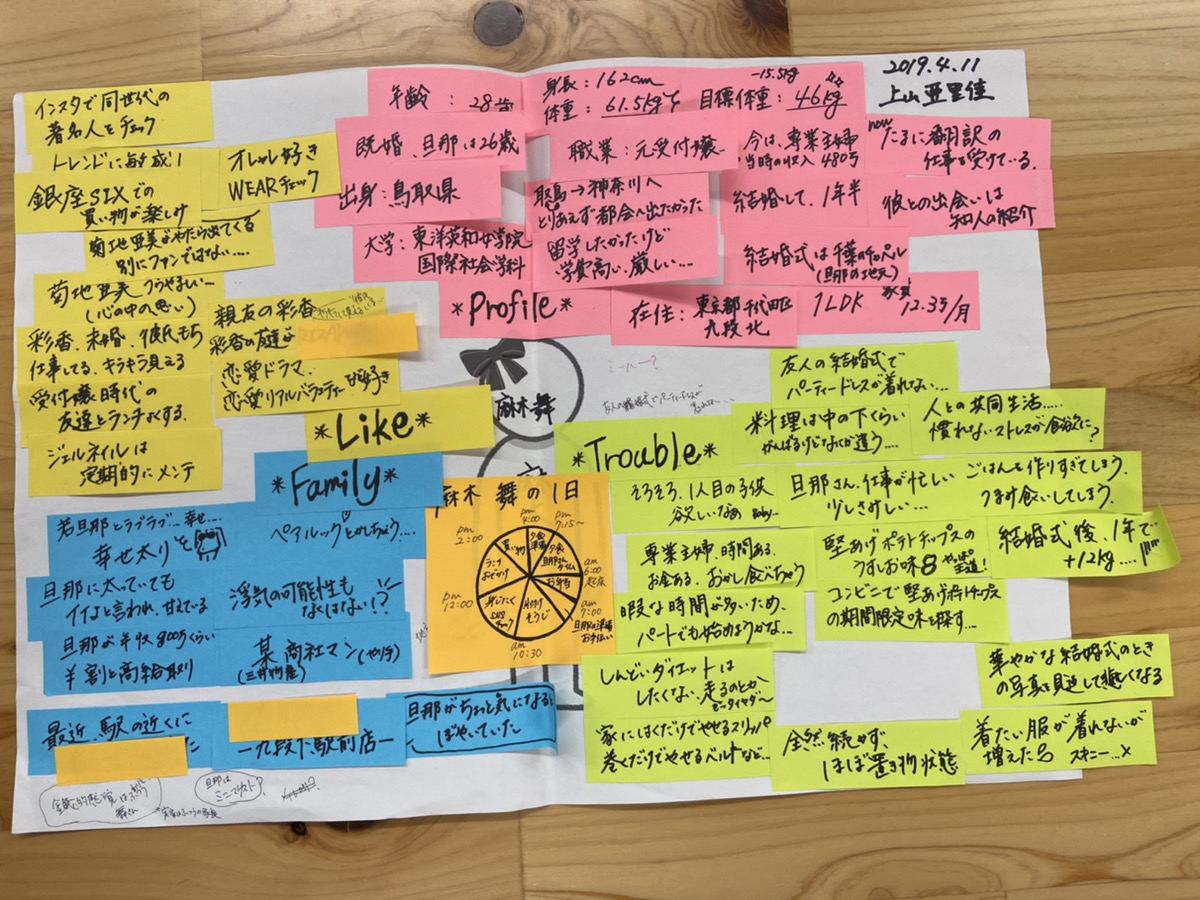 2019.4.11
上山 亜里佳
年齢：28歳
身長：162cm
体重：61.5kg
-15.5kg
目標体重：46kg
既婚、旦那は26歳
職業：元受付嬢
今は、専業主婦
当時の収入 480万
now
たまに翻訳の
仕事を受けている。
出身：鳥取県
鳥取→神奈川へ
とりあえず都会へ出たかった
結婚して、1年半
彼との出会いは
知人の紹介
大学：東洋英和女学院
国際社会学科
留学したかったけど
学費高い、厳しい…
結婚式は千葉のチャペル
(旦那の地元)
*Profile*
在住：東京都千代田区
九段北
1LDK 家賃 12.3万/月
インスタで同世代の
著名人をチェック
トレンドに敏感！
オシャレ好き
WEARチェック
銀座SIXでの
買い物が楽しみ
菊地亜美がやたら出てくる
別にファンではない…
菊地亜美うらやましい…
(心の中の思い)
親友の彩香
彩香の友達が
彩香、未婚、彼氏もち
仕事してる、キラキラ見える
恋愛ドラマ、
恋愛リアルバラエティーが好き
受付嬢時代の
友達とランチよくする。
*Like*
ジェルネイルは
定期的にメンテ
*Family*
若旦那とラブラブ…幸せ…
幸せ太り
ペアルックとかしちゃう…
旦那に太っていても
イイよと言われ、甘えている
浮気の可能性も
なくはない!?
旦那は年収800万くらい
¥ 割と高給取り
某商社マン(やり手)
(三井物産)
最近、駅の近くに
ー九段下駅前店ー
旦那がちょっと気になると
ぼやいていた
旦那は
ミニマリスト？
麻木舞
麻木 舞の1日
pm 2:00
pm 4:00
pm 7:15〜
am 6:00
起床
am 7:00
旦那の準備
お手伝い
am 10:30
pm 12:00
買い物
夕食
準備
夕食
旦那さん
タイム
お弁当
片付け
そうじ
身じたく
SNS
チェック
ランチ
おでかけ
ミーハー？
*Trouble*
友人の結婚式で
パーティードレスが着れない…
料理は中の下くらい
がんばるけどなんか違う…
人との共同生活……
慣れないストレスが食欲に？
そろそろ、1人目の子供
欲しいなぁ Baby…
旦那さん、仕事が忙しい
少しさみしい…
ごはんを作りすぎてしまう、
つまみ食いしてしまう。
専業主婦、時間ある、
お金ある、おかし食べちゃう
堅あげポテトチップスの
うすしお味 8 やっぱ王道！
結婚式後、1年で
+12kg….
暇な時間が多いため、
パートでも始めようかな…
コンビニで堅あげポテトチップス
の期間限定味を探す…
しんどいダイエットは
したくない、走るのとか
家にしくだけでやせるスリッパ
巻くだけでやせるベルトなど…
全然続かず、
ほぼ置き物状態
華やかな結婚式のとき
の写真を見返して悔しくなる
着たい服が着れないが
増えた スキニー…×